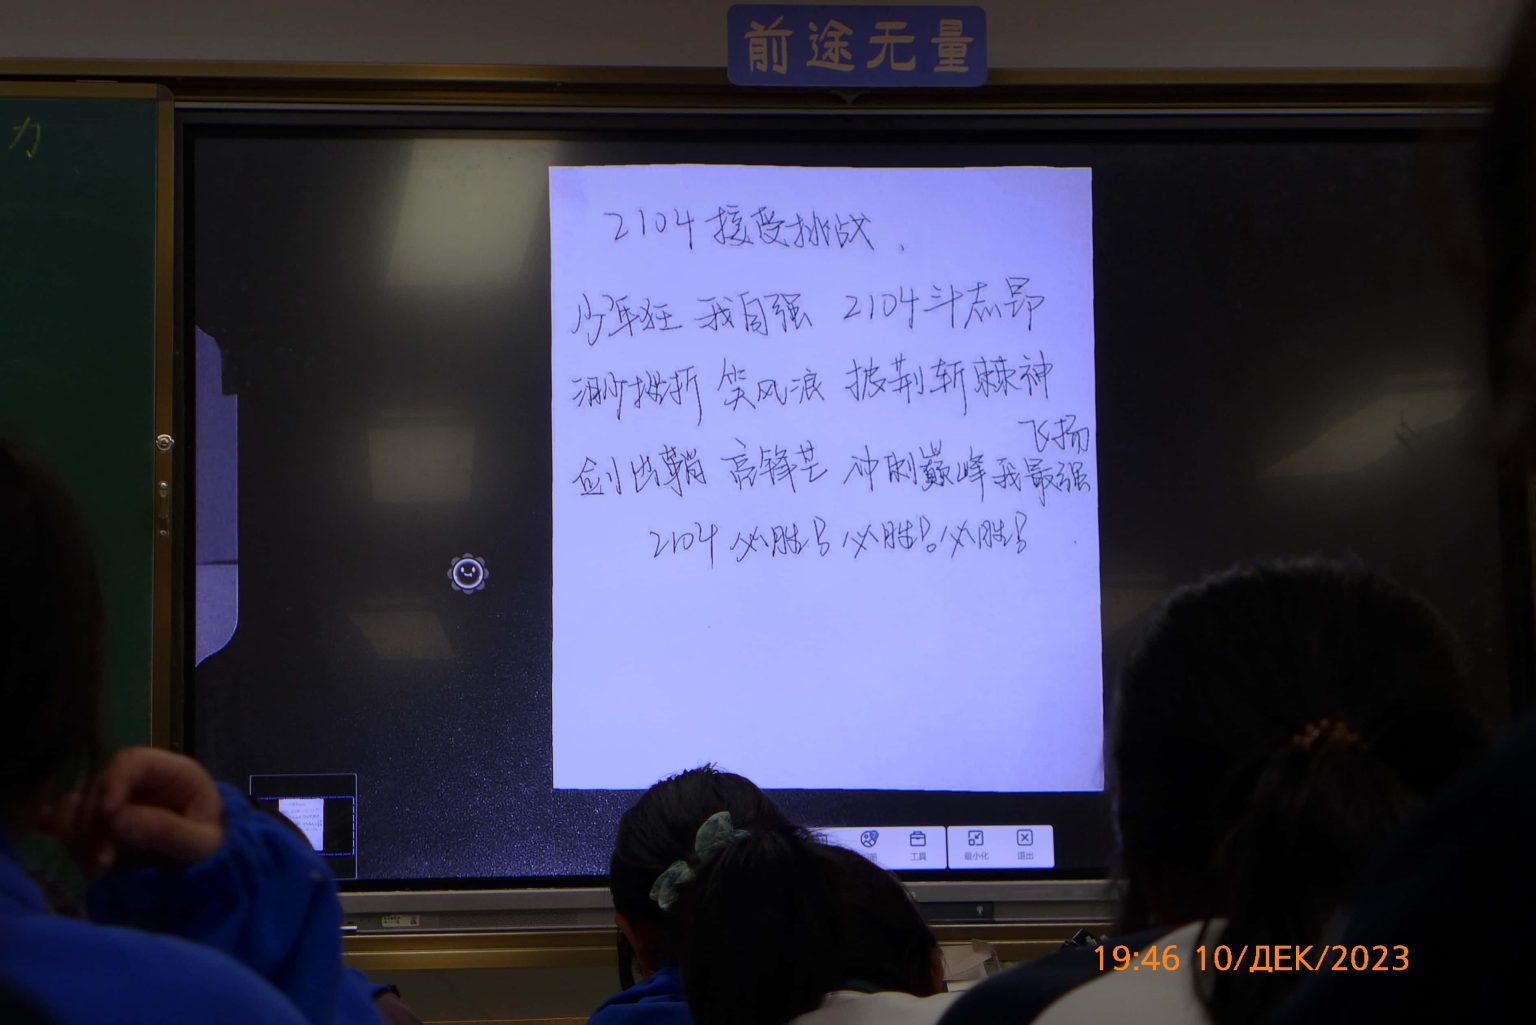 前途无量
力
2104 接受挑战.
少年狂 我自强 2104斗志昂
渺挫折 笑风浪 披荆斩棘神
飞扬
剑出鞘 亮锋芒 冲刺巅峰我最强
2104 必胜! 必胜! 必胜!
工具
最小化
退出
19:46 10/ДЕК/2023